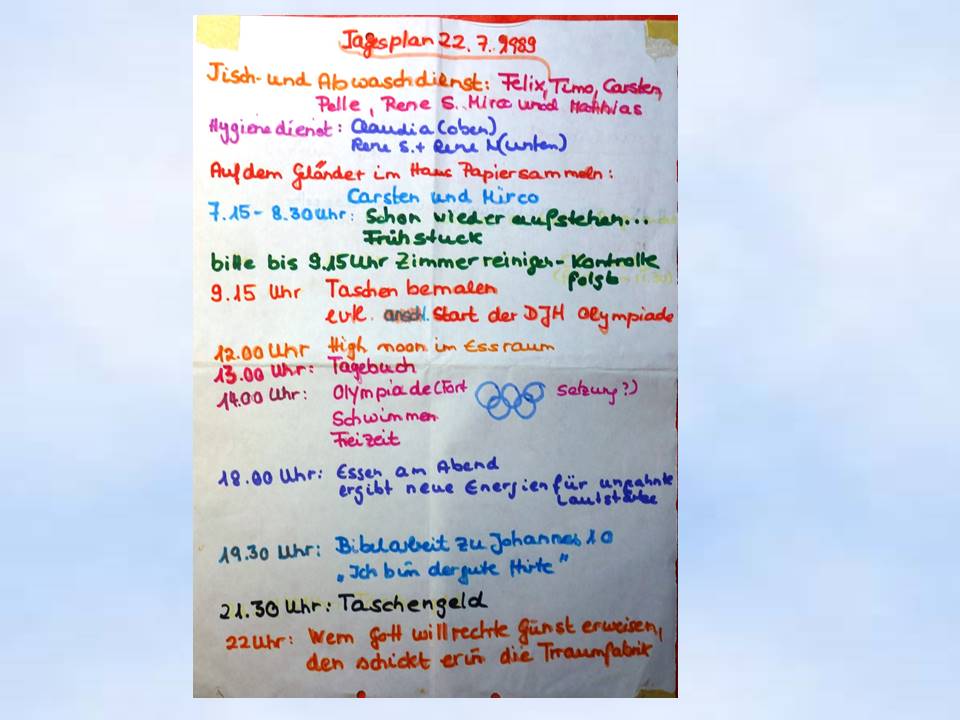 Tagesplan 22.7.1989
Tisch- und Abwaschdienst: Felix, Timo, Carsten,
Pelle, Rene S. Mirco und Matthias
Hygienedienst: Claudia (oben)
Rene S. + Rene N (unten)
Auf dem Geländer im Haus Papiersammeln:
Carsten und Mirco
7.15 - 8.30 Uhr: Schon wieder aufstehen...
Frühstuck
bitte bis 9.15 Uhr Zimmer reinigen - Kontrolle
folgt
9.15 Uhr Taschen bemalen
evtl. anschl. Start der DJH Olympiade
12.00 Uhr High noon im Essraum
13.00 Uhr: Tagebuch
14.00 Uhr: Olympiade (Fort setzung?)
Schwimmen
Freizeit
18.00 Uhr: Essen am Abend
ergibt neue Energien für ungeahnte
Lautstärke
19.30 Uhr: Bibelarbeit zu Johannes 10
„Ich bin der gute Hirte"
21.30 Uhr: Taschengeld
22 Uhr: Wem Gott will rechte Gunst erweisen,
den schickt er in die Traumfabrik